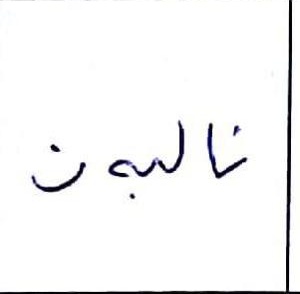 نالبەن